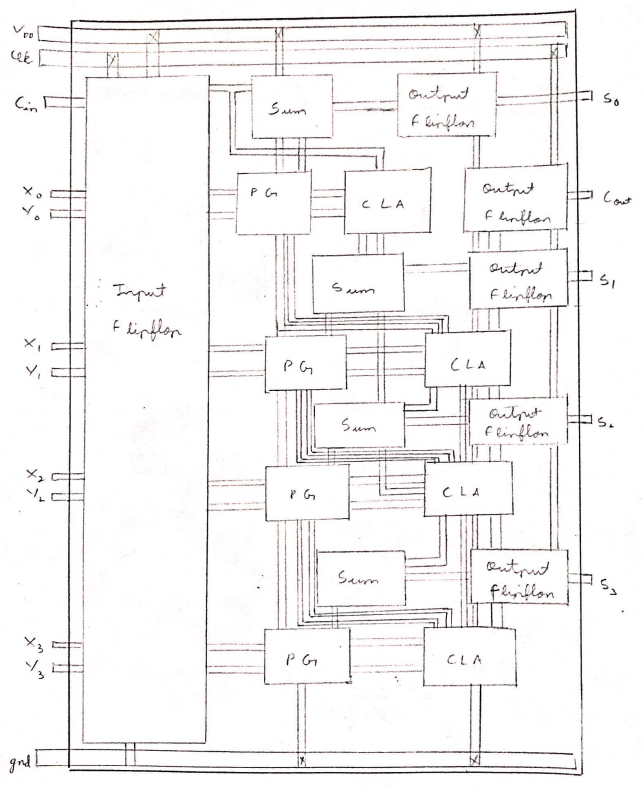 VDD
Clk
Cin
Sum
Output
Flipflop
S0
X0
Y0
PG
CLA
Output
Flipflop
Cout
Input
Flipflop
Sum
Output
Flipflop
S1
X1
Y1
PG
CLA
Sum
Output
Flipflop
S2
X2
Y2
PG
CLA
Sum
Output
Flipflop
S3
X3
Y3
PG
CLA
gnd